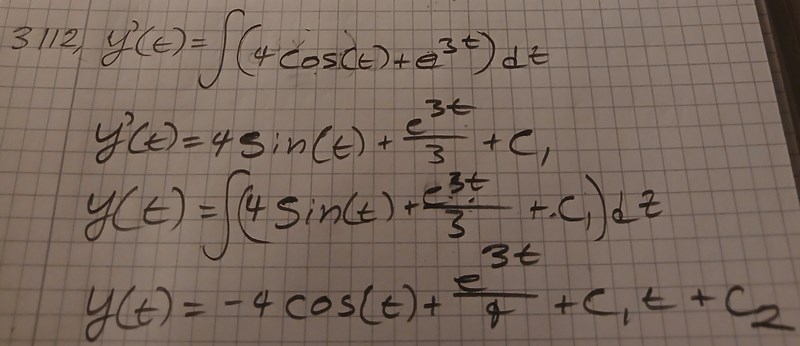 3112, y'(t) = ∫(4cos(t) + e^{3t})dt
y'(t) = 4sin(t) + e^{3t}/3 + C₁
y(t) = ∫(4sin(t) + e^{3t}/3 + C₁)dt
y(t) = -4cos(t) + e^{3t}/9 + C₁t + C₂